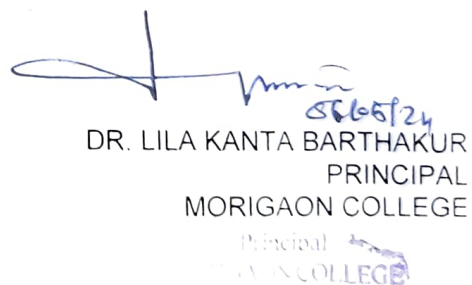 DR. LILA KANTA BARTHAKUR
PRINCIPAL
MORIGAON COLLEGE
Principal
COLLEGE